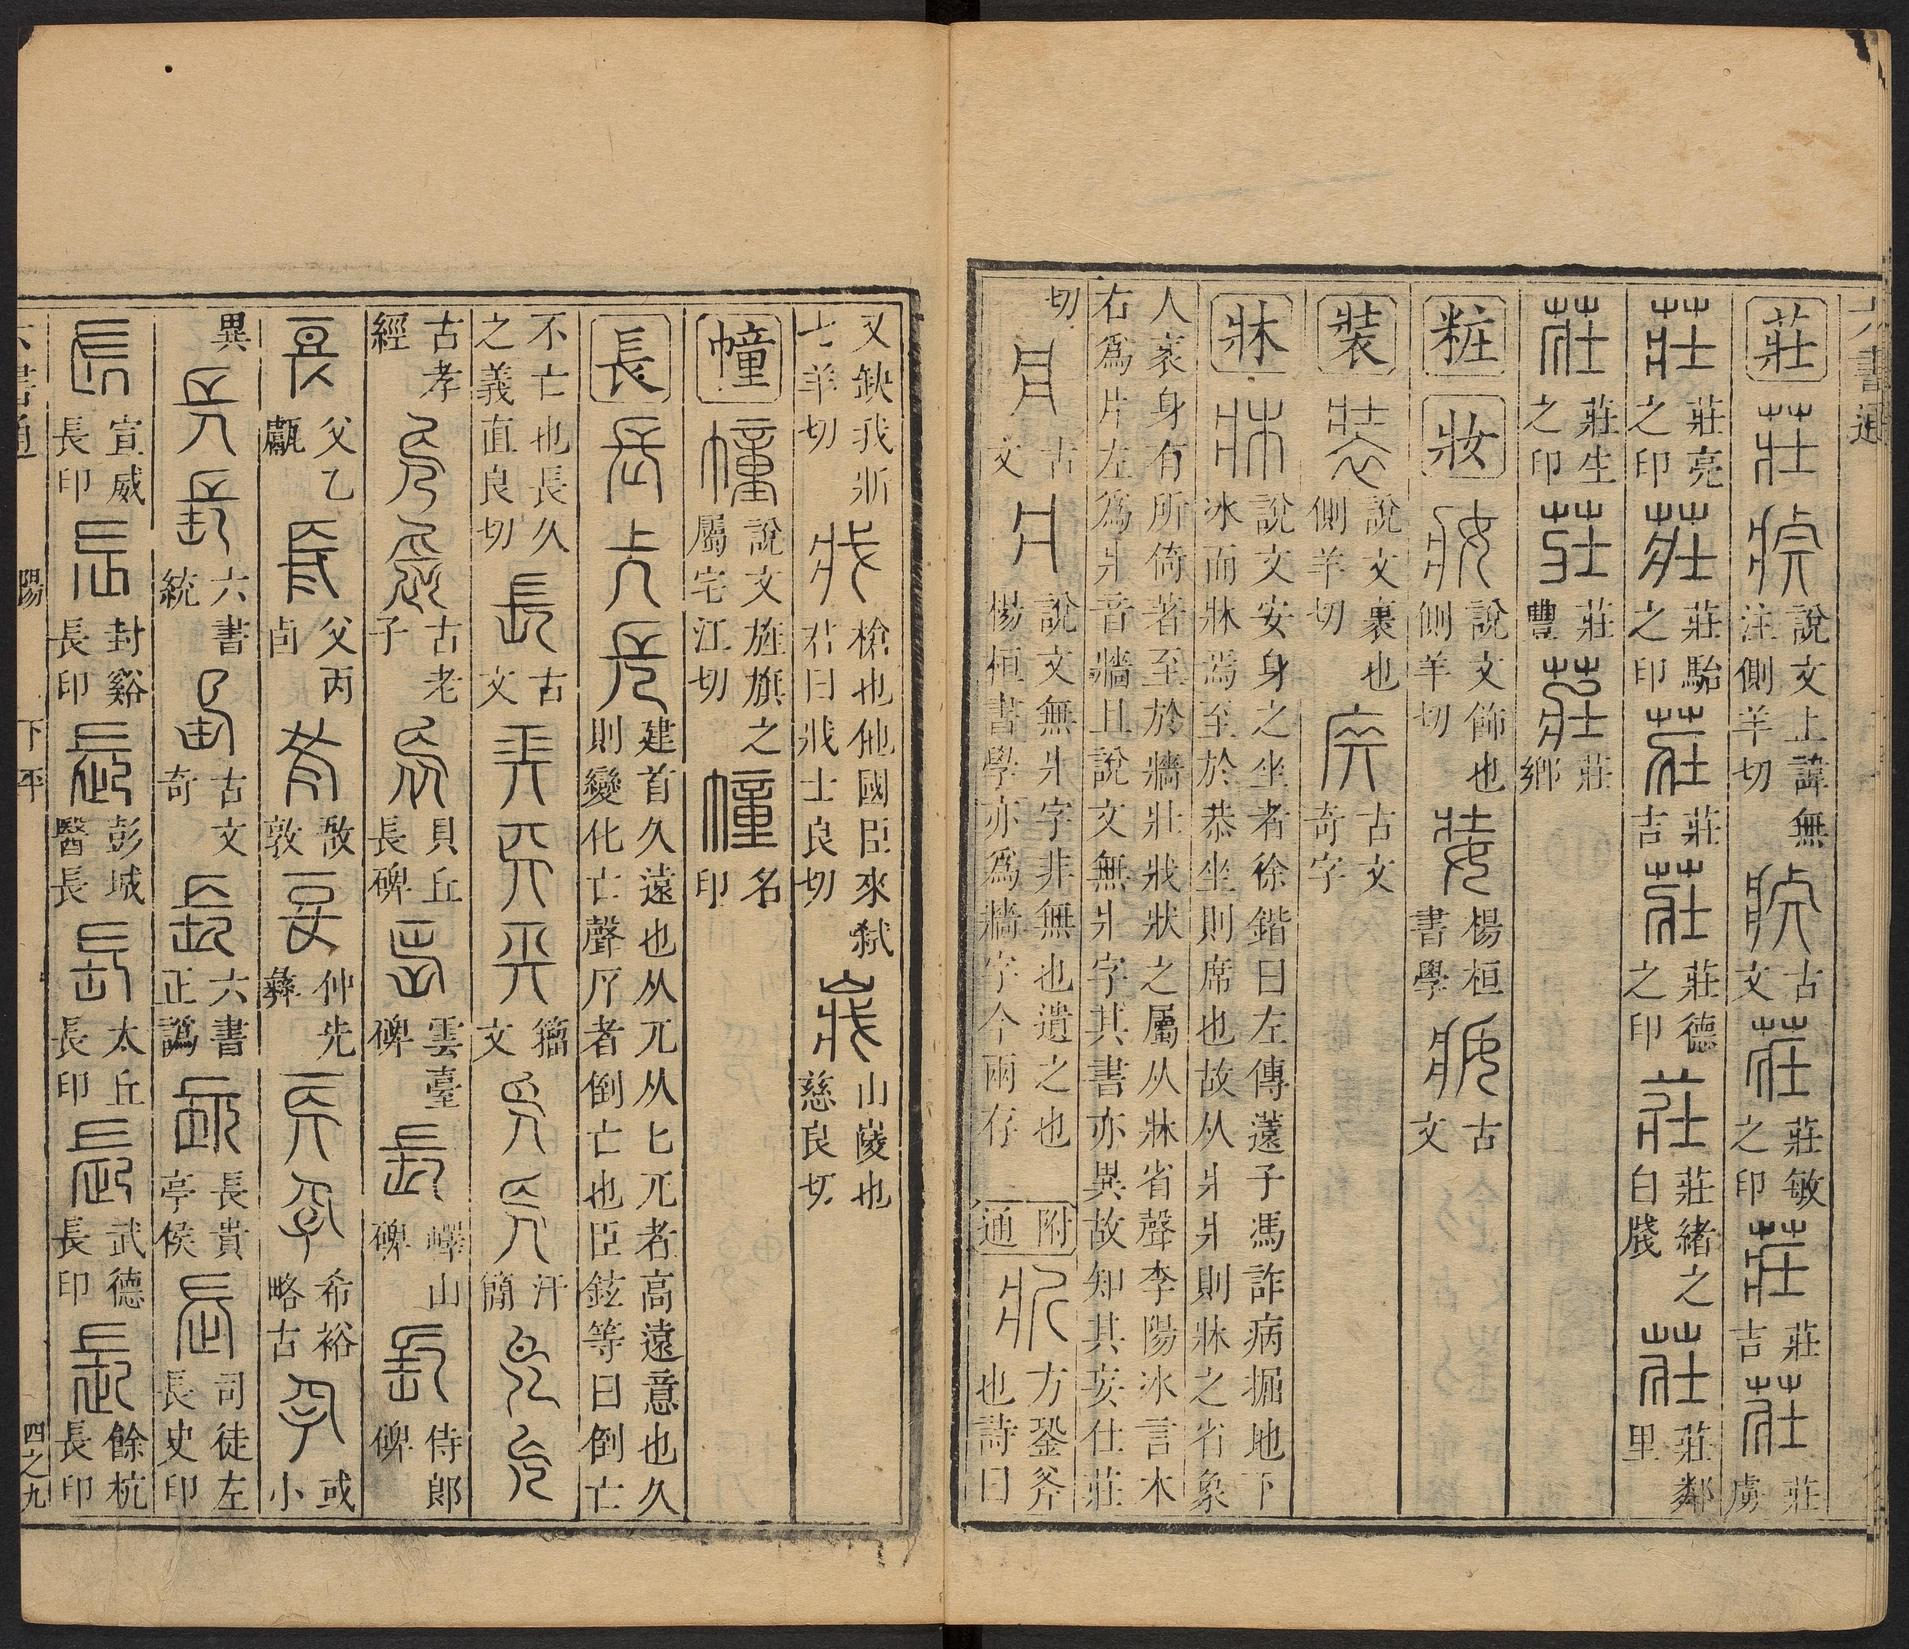 六書通
莊 說文上諱無注側羊切 古文 莊敏之印 莊吉 莊虜
莊亮之印 莊駘之印 莊吉 莊德之印 莊緒之白牋 莊鄰里
莊生之印 莊豐 莊鄉
粧 妝 說文飾也側羊切 楊桓書學 古文
裝 說文裹也側羊切 古文奇字
牀 說文安身之坐者徐鍇曰左傳薳子馮詐病掘地下冰而牀焉至於恭坐則席也故从爿爿則牀之省象
人衺身有所倚著至於牆壯戕狀之屬从牀省聲李陽冰言木右爲片左爲爿音牆且說文無爿字其書亦異故知其妄仕莊
切 古文 說文無爿字非無也遺之也楊桓書學亦爲牆字今兩存 附通 方銎斧也詩曰
又缺我斨七羊切 槍也他國臣來弑君曰戕士良切 山峻也慈良切
幢 說文旌旗之屬宅江切 名印
長 建首久遠也从兀从匕兀者高遠意也久則變化亡聲𠂆者倒亡也臣鉉等曰倒亡
不亡也長久之義直良切 古文 籀文 汗簡
古孝經 古老子 貝丘長碑 雲臺碑 嶧山碑 侍郎碑
父乙甗 父丙卣 敔敦 仲先彝 希裕略古 或小
異 六書統 古文奇 六書正譌 長貴亭侯 司徒左長史印
宣威長印 封谿長印 彭城醫長 太丘長印 武德長印 餘杭長印
六書通 陽 下平 四之九